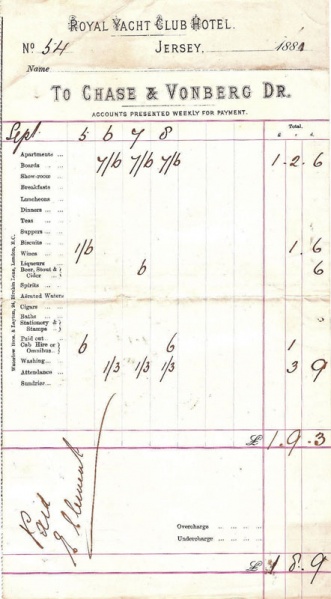 ROYAL YACHT CLUB HOTEL.
Nº 54 JERSEY, 188
Name
To CHASE & VONBERG DR.
ACCOUNTS PRESENTED WEEKLY FOR PAYMENT.
Sept 5 6 7 8 Total.
£ s d
Apartments ...
Boards ... 7/6 7/6 7/6 1 . 2 . 6
Show-room
Breakfasts ...
Luncheons
Dinners ...
Teas ...
Suppers ...
Biscuits ...
Wines ... 1/6 1 . 6
Liqueurs ...
Beer, Stout & Cider ... 6 6
Spirits ...
Aërated Waters
Cigars ...
Baths ...
Stationery & Stamps ...
Paid out ...
Cab Hire or Omnibus ... 6 6 1
Washing ...
Attendance 1/3 1/3 1/3 3 9
Sundries ...
£ 1 . 9 . 3
Paid
Overcharge ... ... ... ...
Undercharge ... ... ... ...
£ 1 8 . 9